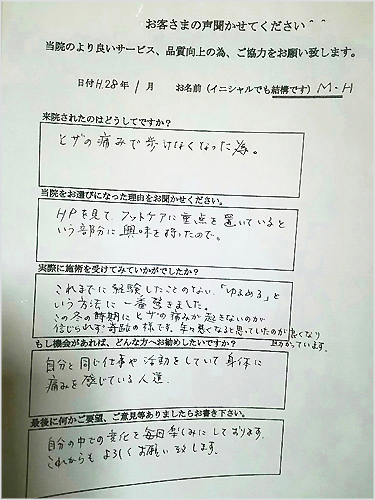 お客さまの声聞かせてください＾＾
当院のより良いサービス、品質向上の為、ご協力をお願い致します。
日付 H.28年 1月 お名前（イニシャルでも結構です） M・H
来院されたのはどうしてですか？
ヒザの痛みで歩けなくなった為。
当院をお選びになった理由をお聞かせください。
HPを見て フットケアに重点を置いていると
いう部分に興味を持ったので。
実際に施術を受けてみていかがでしたか？
これまでに経験したことのない、「ゆるめる」と
いう方法に一番驚きました。
この冬の時期にヒザの痛みが起きないのが
信じられず奇跡の様です。年々悪くなると思っていたのが良くなり
むかっています。
もし機会があれば、どんな方へお勧めしたいですか？
自分と同じ仕事や活動をしていて身体に
痛みを感じている人達
最後に何かご要望、ご意見等ありましたらお書き下さい。
自分の中での変化を毎回楽しみにしております。
これからもよろしくお願い致します。